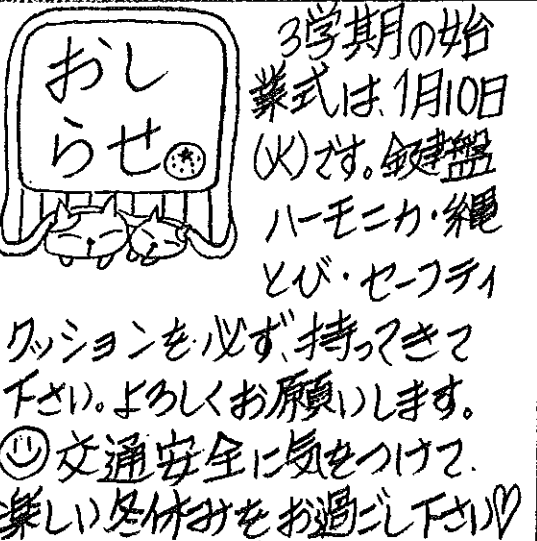 おし
らせ
3学期の始
業式は、1月10日
(火)です。鍵盤
ハーモニカ・縄
とび・セーフティ
クッションを必ず、持ってきて
下さい。よろしくお願いします。
交通安全に気をつけて、
楽しい冬休みをお過ごし下さい♡